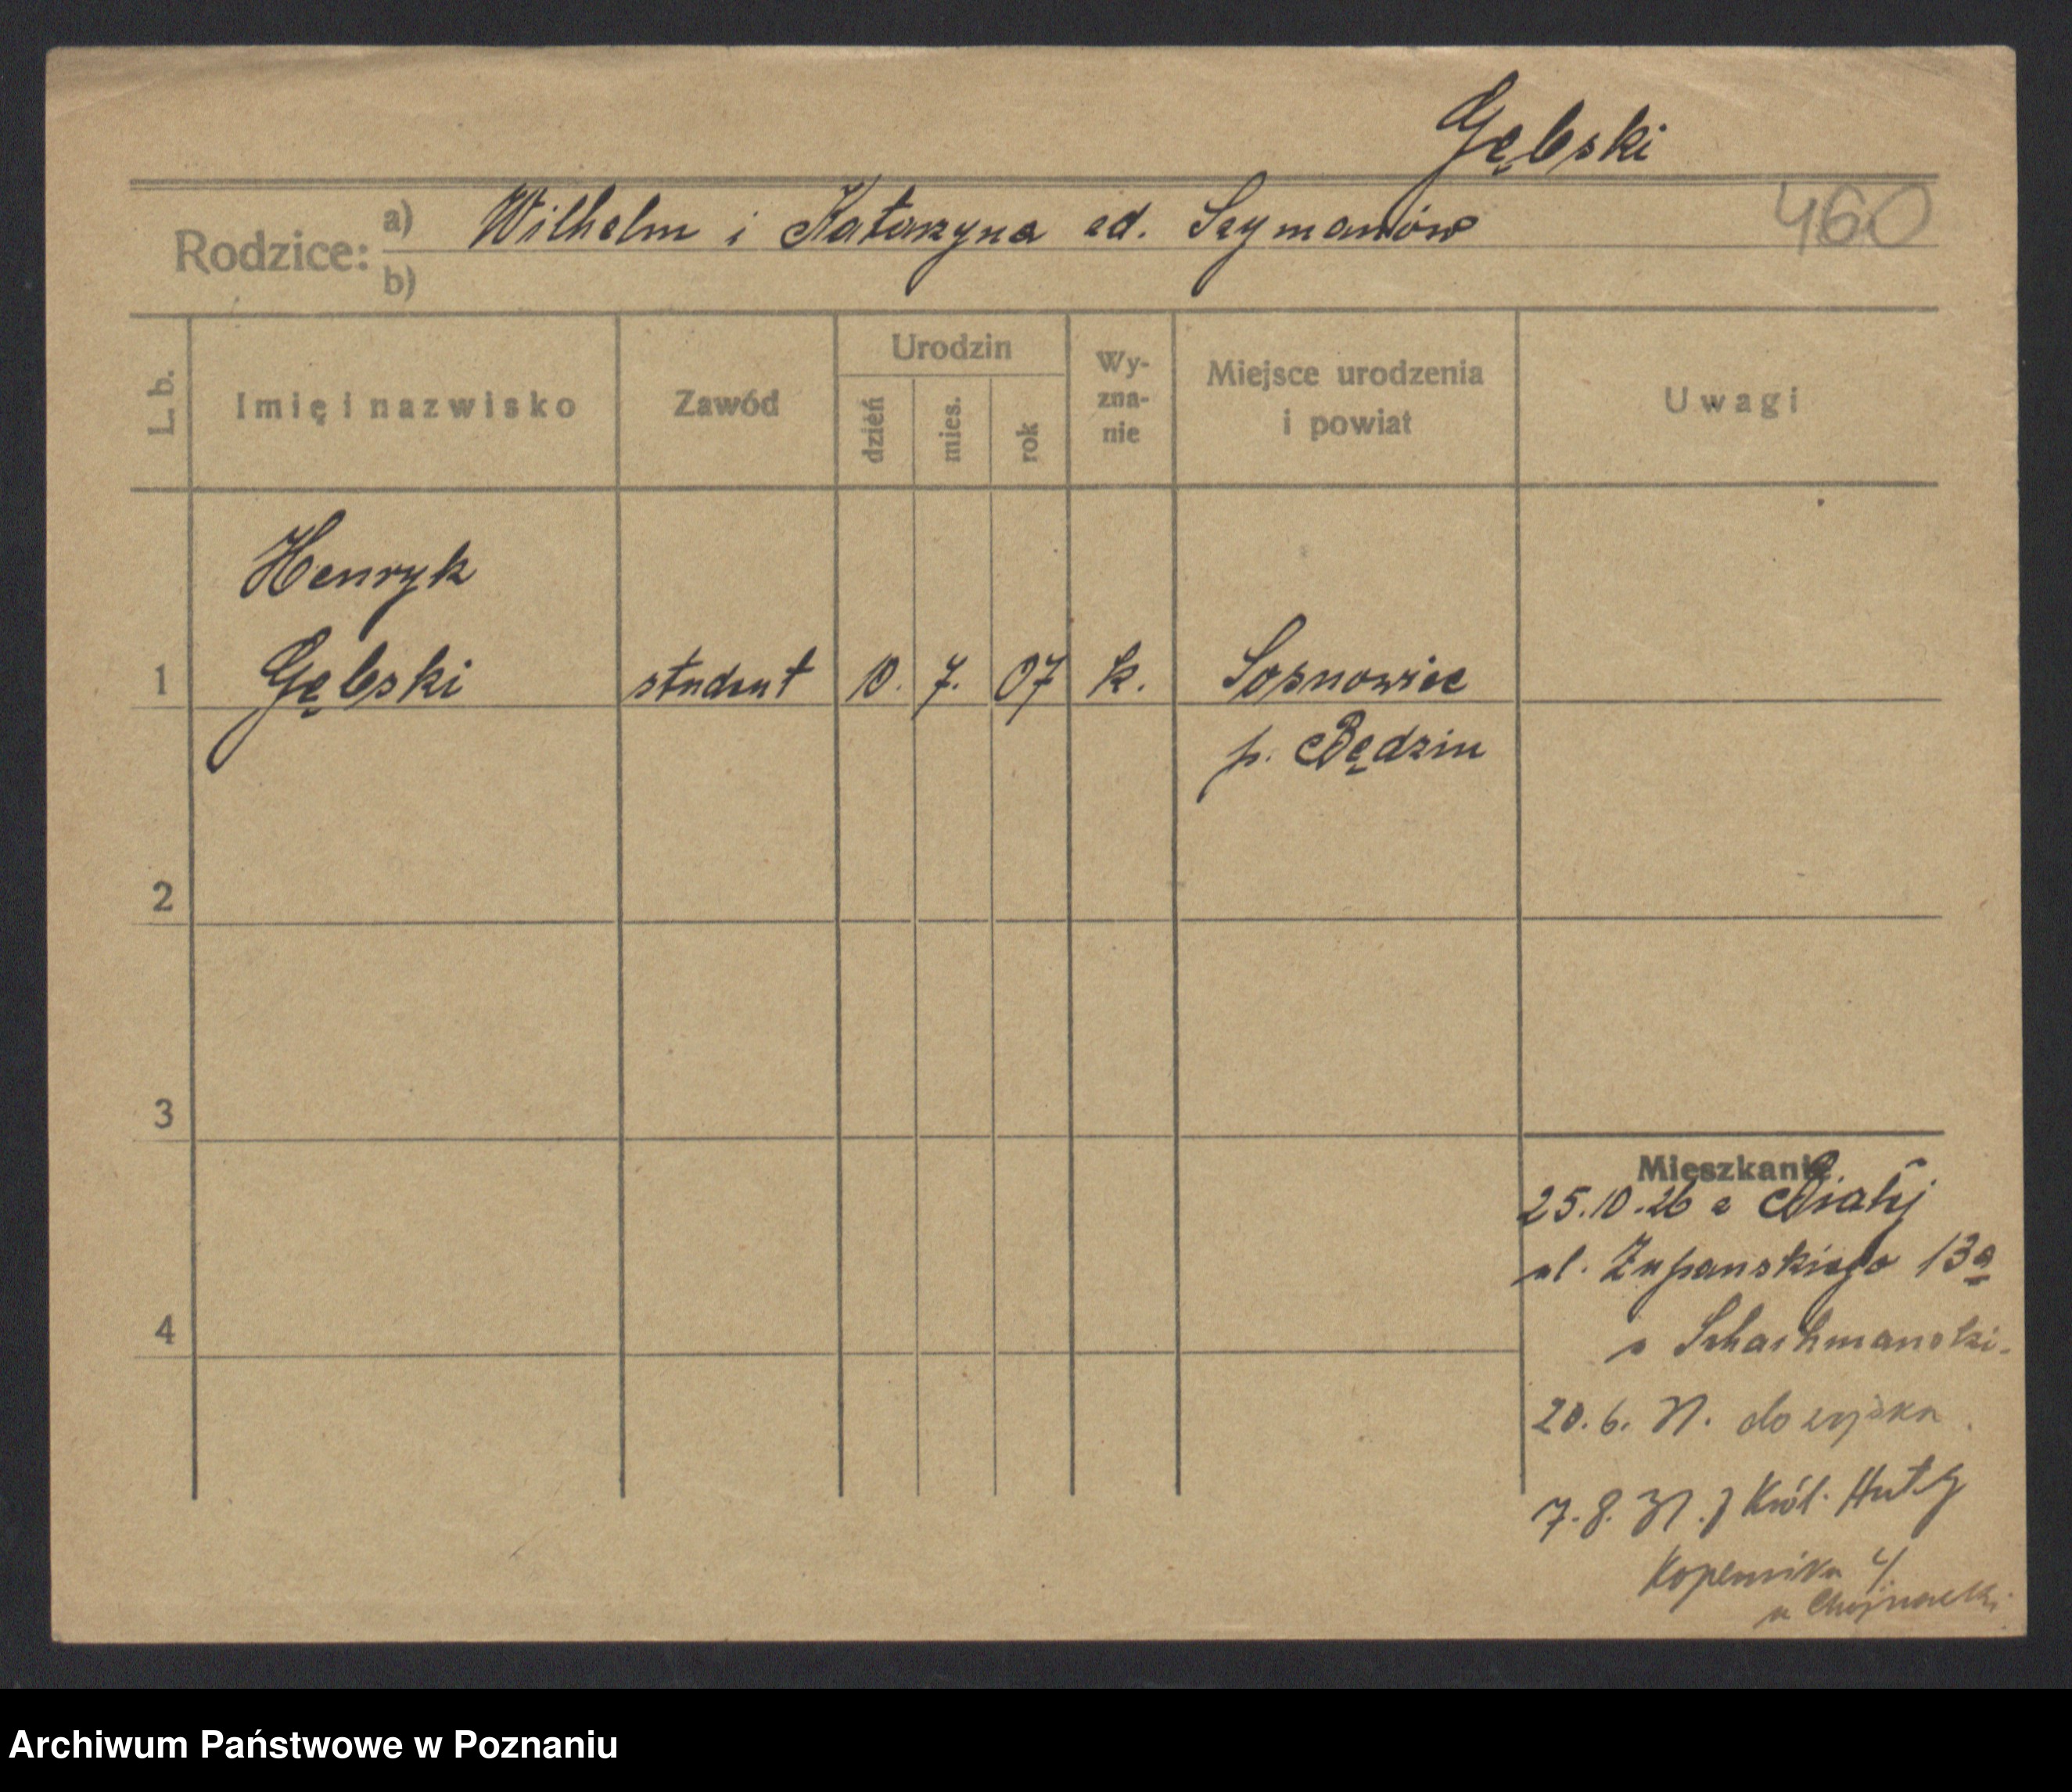 Gębski
460
Rodzice: a) Wilhelm i Katarzyna zd. Szymanów
b)
L. b.
Imię i nazwisko
Zawód
Urodzin
dzień
mies.
rok
Wy-
zna-
nie
Miejsce urodzenia
i powiat
Uwagi
Henryk
1 Gębski student 10. 7. 07 k. Sosnowiec
p. Będzin
2
3
4
Mieszkanie
25.10.26 z Białej
ul. Żupańskiego 13a
20.6.31. do wojska
7.8.31. z Król. Huty
Kopernika 4/
u Chojnacki
Archiwum Państwowe w Poznaniu